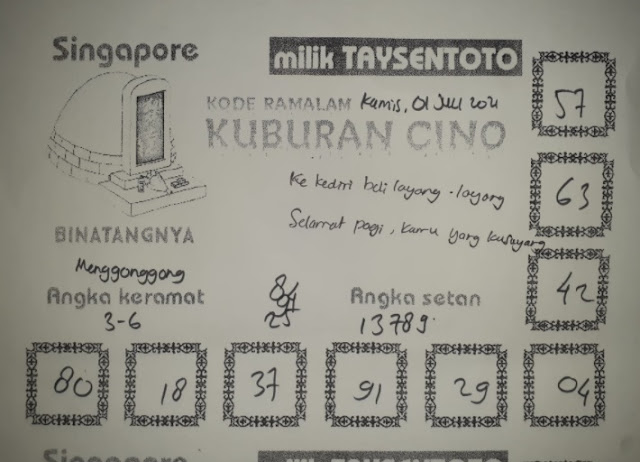 Singapore
milik TAYSENTOTO
KODE RAMALAM Kamis, 01 Jul 2021
KUBURAN CINO
57
Ke kediri beli layang-layang
63
Selamat pagi, kamu yang kusayang
BINATANGNYA
Menggonggong
42
Angka keramat
Angka setan
3-6
25
13789
80 18 37 91 29 04
Singapore
milik TAYSENTOTO